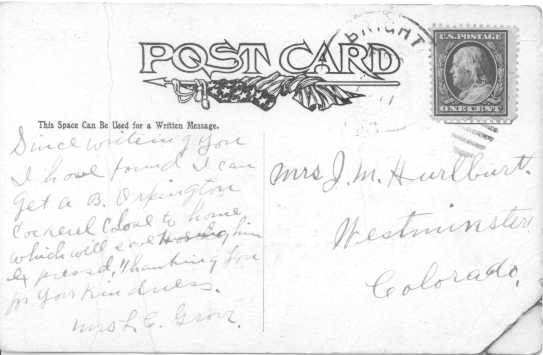 POST CARD
BRIGHT
U.S. POSTAGE
ONE CENT
This Space Can Be Used for a Written Message.
Since writing you
I have found I can
get a B. Orpington
Cockerel close to home
which will save having him
expressed, Thanking you
for your kindness.
Mrs L. E. Grove.
Mrs J. M. Hurlburt.
Westminster
Colorado.